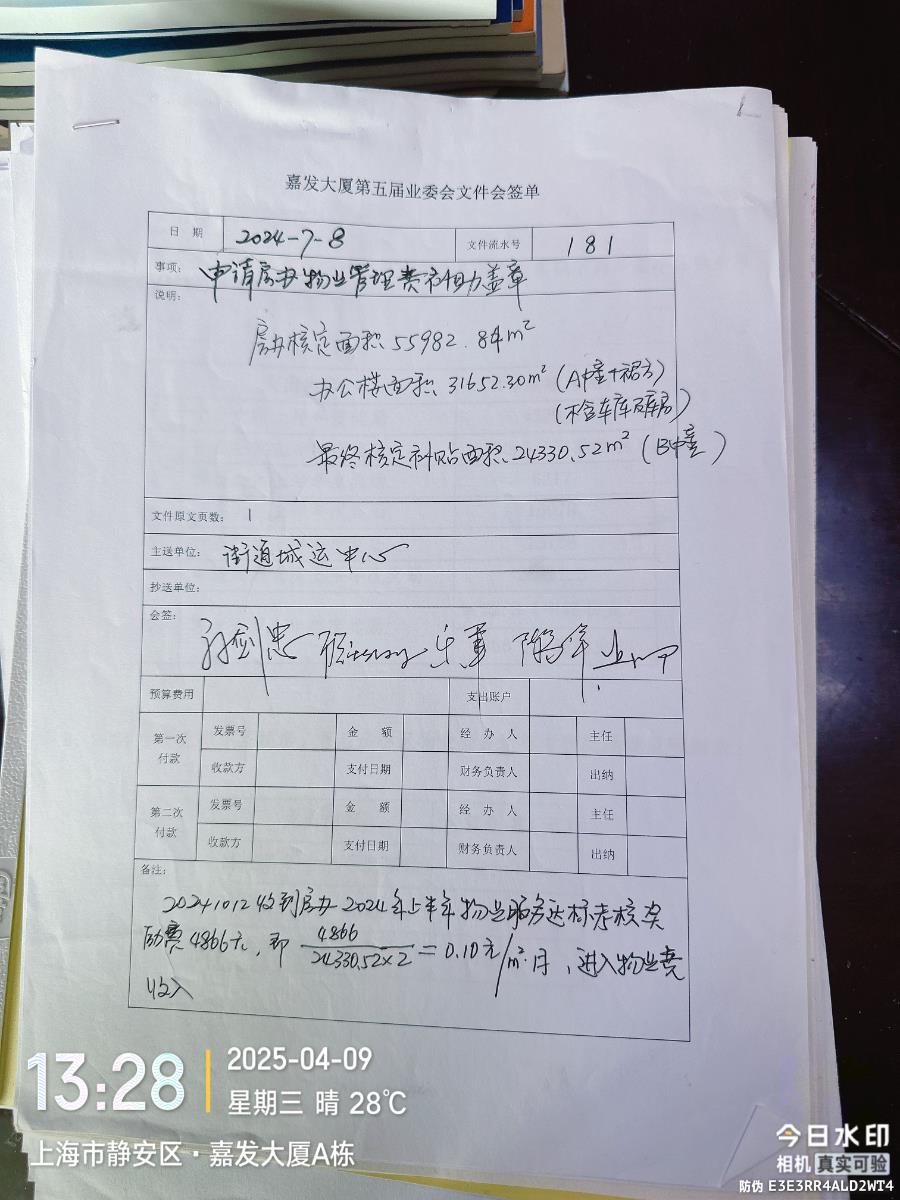 嘉发大厦第五届业委会文件会签单
日 期 2024-7-8 文件流水号 181
事项: 申请房办物业管理费补贴盖章
说明:
房办核定面积 55982.84m²
办公楼面积 31652.30m² (A幢+裙房)
(不含车库及库房)
最终核定补贴面积 24330.52m² (B幢)
文件原文页数: 1
主送单位: 街道城运中心
抄送单位:
会签:
预算费用 支出账户
第一次付款 发票号 金 额 经 办 人 主任
收款方 支付日期 财务负责人 出纳
第二次付款 发票号 金 额 经 办 人 主任
收款方 支付日期 财务负责人 出纳
备注:
20241012收到房办2024年上半年物业服务达标考核奖
励费4866元, 即 4866/24330.52×2 = 0.10元/m²·月, 进入物业费
收入
13:28 2025-04-09
星期三 晴 28℃
上海市静安区·嘉发大厦A栋
今日水印
相机 真实可验
防伪 E3E3RR4ALD2WT4